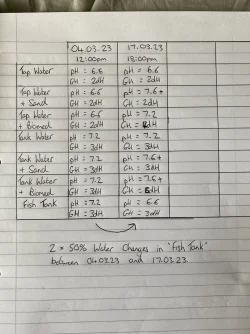 04.03.23 17.03.23
12:00pm 18:00pm
Tap Water pH = 6.6 pH = 6.6
GH = 2dH GH = 2dH
Tap Water pH = 6.6 pH = 7.6+
+ Sand GH = 2dH GH = 2dH
Tap Water pH = 6.6 pH = 7.2
+ Biomed GH = 2dH GH = dH
Tank Water pH = 7.2 pH = 7.2
GH = 3dH GH = 3dH
Tank Water pH = 7.2 pH = 7.6+
+ Sand GH = 3dH GH = 3dH
Tank Water pH = 7.2 pH = 7.6+
+ Biomed GH = 3dH GH = dH
Fish Tank pH = 7.2 pH = 6.6
GH = 3dH GH = 3dH
2 x 50% Water Changes in "Fish Tank"
between 04.03.23 and 17.03.23.